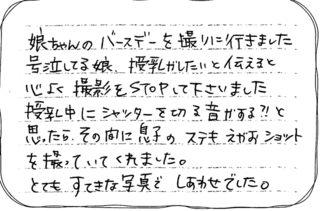 娘ちゃんのバースデーを撮りに行きました
号泣してる娘、授乳がしたいと伝えると
心よく撮影をSTOPして下さいました
授乳中にシャッターを切る音がする?!と
思ったら、その間に息子のステキえがおショット
を撮っていてくれました。
とてもすてきな写真でしあわせでした。